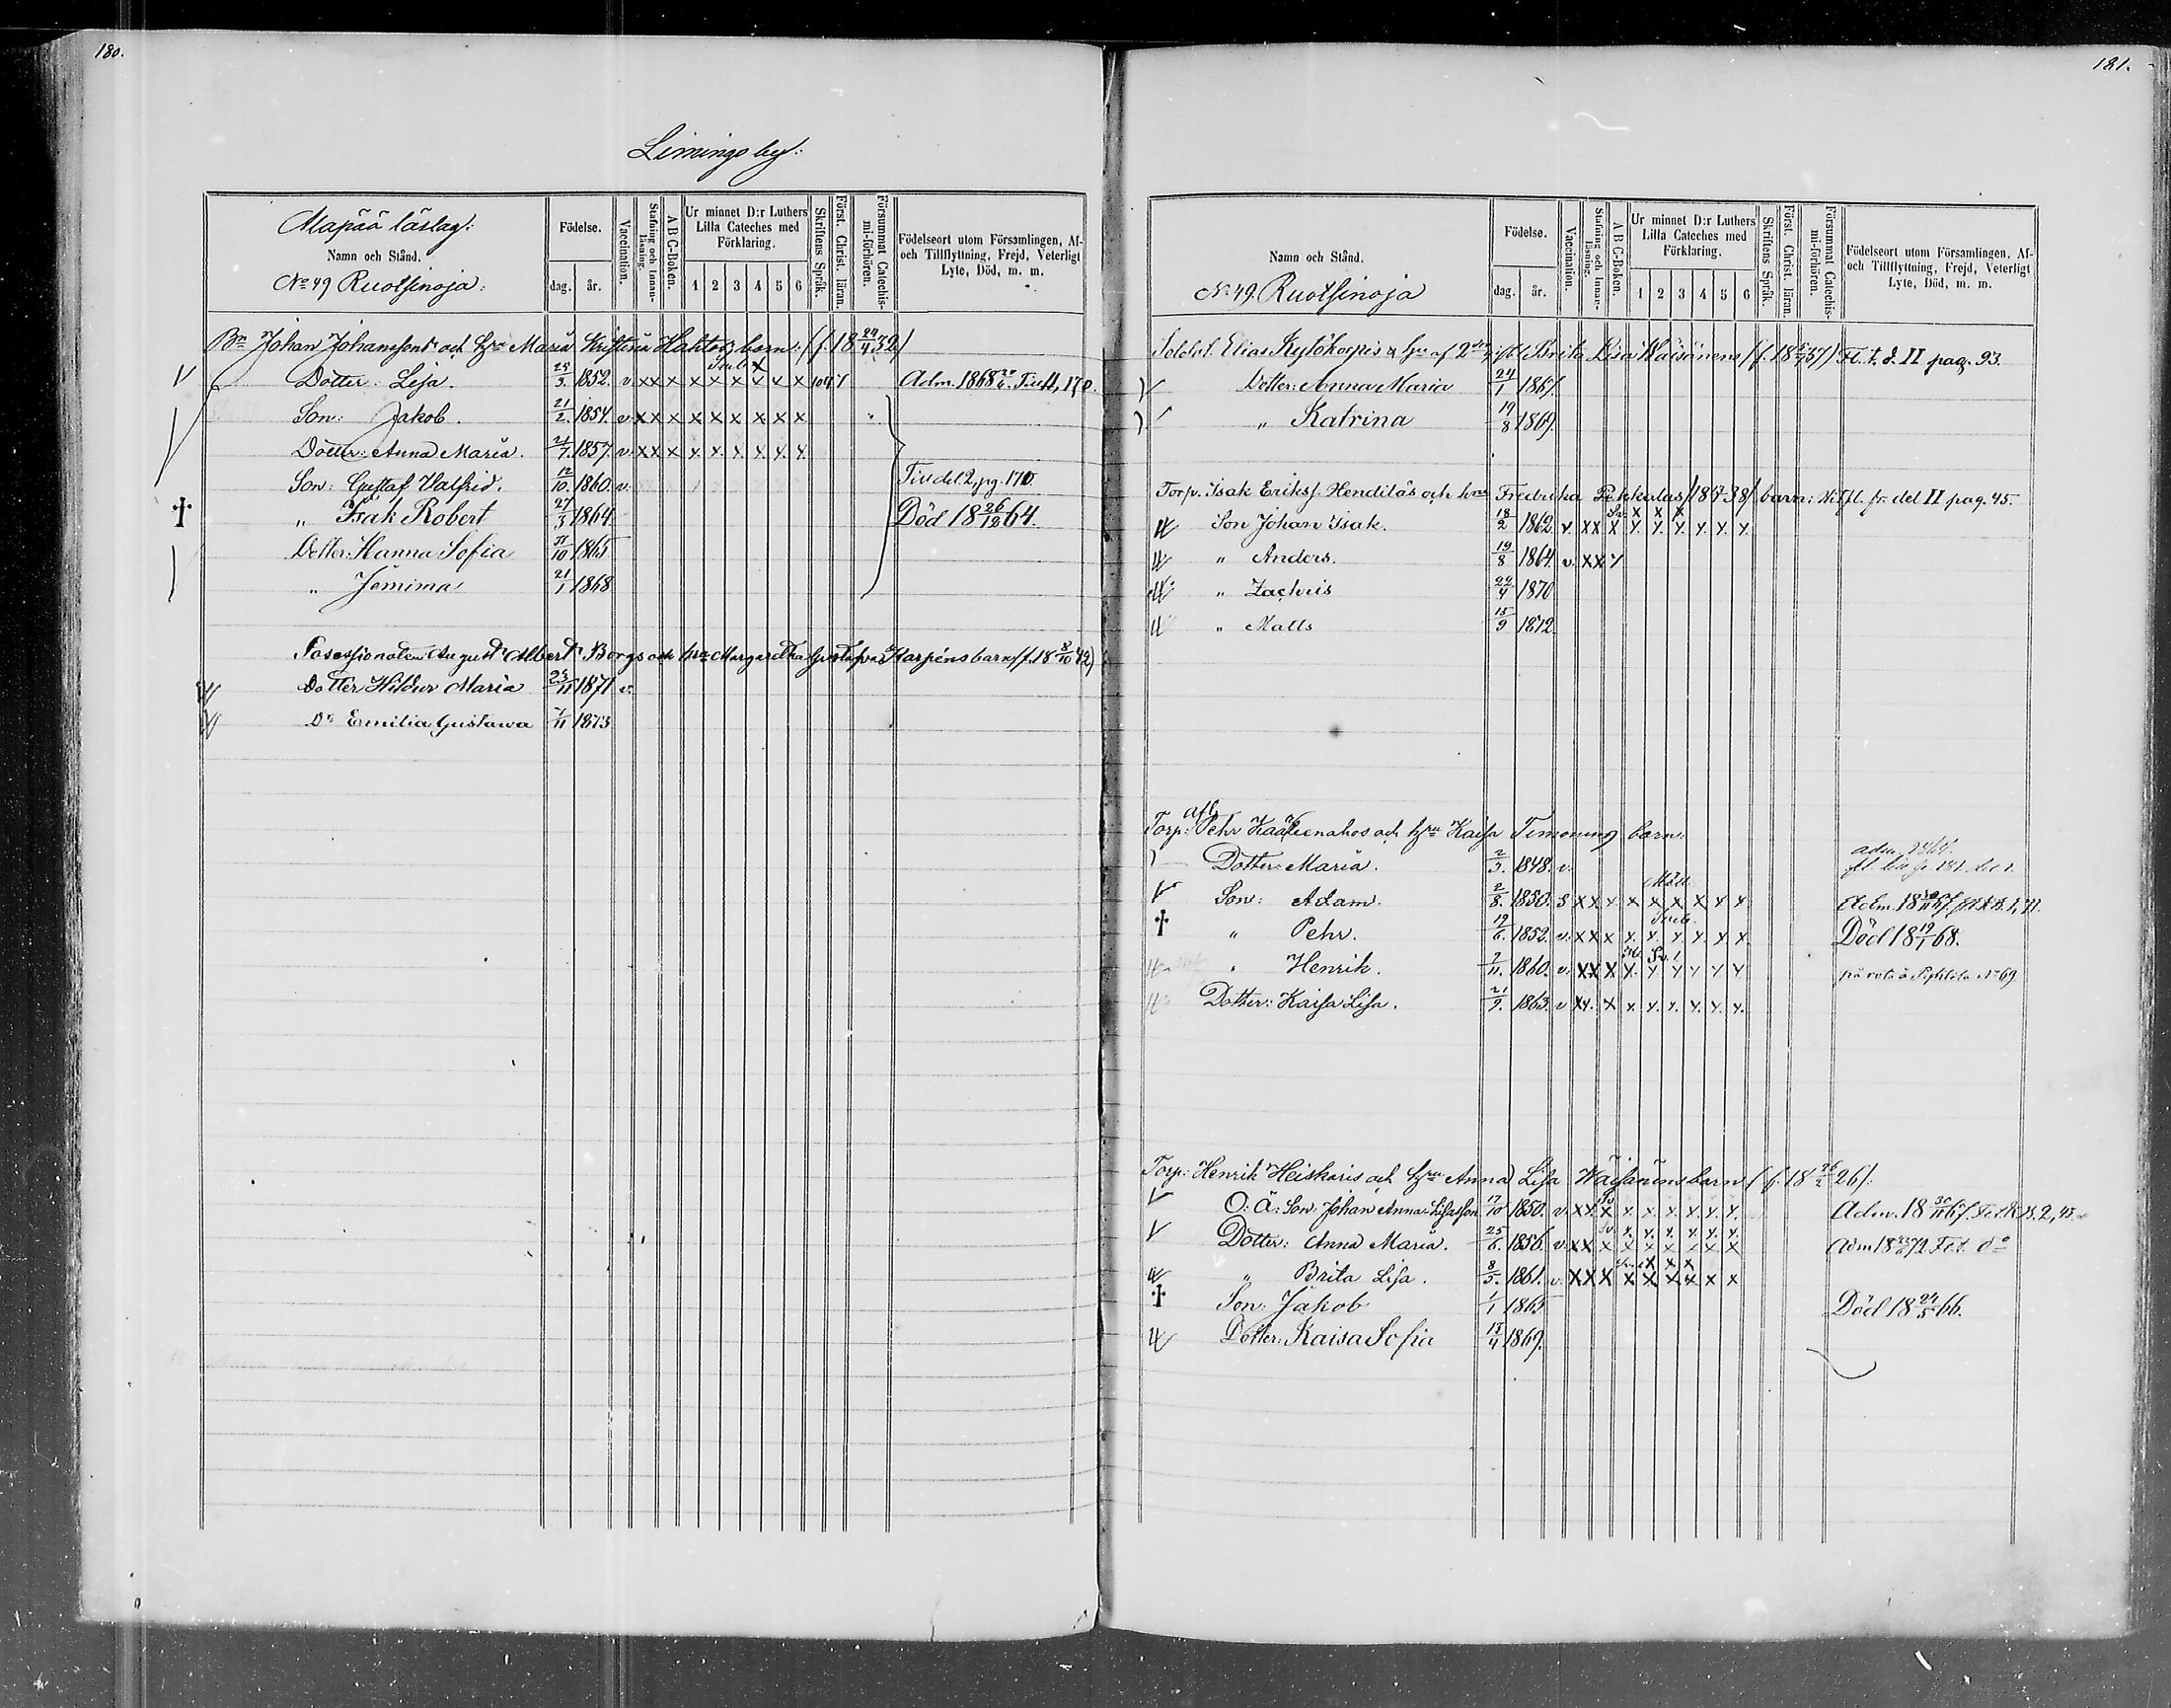 180.
Limingo by:
Alapää läslag:
Namn och Stånd.
No 49 Ruotsinoja:
Födelse.
dag. år.
Vaccination.
Stafning och Innanläsning.
A B C-Boken.
Ur minnet D:r Luthers Lilla Cateches med Förklaring.
1 2 3 4 5 6
Skriftens Språk.
Först. Christ. läran.
Försummat Catechismi-förhören.
Födelseort utom Församlingen, Af- och Tillflyttning, Frejd, Veterligt Lyte, Död, m. m.
Bn Johan Johanssons och hru Maria Kristina barn: (f. 18 24/4 32)
Dotter: Lisa. 25/3. 1852. v. x x x x x x x x x Adm. 1868
Son: Jakob. 21/2. 1854. v. x x x x x x x x x
Dotter: Anna Maria. 1857. v. x x x x x x x x x
Son: Gustaf Valfrid. 12/10. 1860. v. del 2, pg. 170.
" Isak Robert 27/3 1864 Död 18 26/12 64.
Dotter: Hanna Sofia 1865
" Jemima 21/1 1868
August Albert Borgs och hru Margaretha Gustafva Karpéns barn (f. 18 8/10 42)
Dotter Hildur Maria 23/11 1871 v.
Do Emilia Gustawa 7/11 1873
181.
Namn och Stånd.
No 49. Ruotsinoja
Födelse.
dag. år.
Vaccination.
Stafning och Innanläsning.
A B C-Boken.
Ur minnet D:r Luthers Lilla Cateches med Förklaring.
1 2 3 4 5 6
Skriftens Språk.
Först. Christ. läran.
Försummat Catechismi-förhören.
Födelseort utom Församlingen, Af- och Tillflyttning, Frejd, Veterligt Lyte, Död, m. m.
Soldat. Elias Kylökorpis & hru af 2dra gift. Brita Lisa Väisänens Fl. t. d. II pag. 93.
Dotter: Anna Maria 24/1 1867.
" Katrina 19/8 1869.
Torp. Isak Erikss. Hendiläs och hru Fredrika Pekkalas barn: fr. del II pag. 45.
Son Johan Isak. 18/2 1862. v. x x x x x x x x x
" Anders. 19/8 1864. v. x x x
" Zachris 22/4 1870
" Matts 15/9 1872.
afl.
Torp: Pehr och hru Kaisa Timonens barn.
Dotter: Maria. 2/3. 1848. v.
Son: Adam. 2/8. 1850. S x x x x x x x x x
" Pehr. 19/6. 1852. v. x x x x x x x x x Död 18 19/1 68.
" Henrik. 7/11. 1860. v. x x x x x x x x x No 69
Dotter: Kaisa Lisa. 21/9. 1863. v x x x x x x x x x
Torp: Henrik Heiskaris och hru Anna Lisa Väisänens barn (f. 18 26/2 26).
O: Ä: Son: Johan Anna-Lisasson 17/10 1850. v. x x x x x x x x x Adm. 18 30/11 67.
Dotter: Anna Maria. 25/6. 1856. v. x x x x x x x x x
" Brita Lisa. 8/5. 1861. v. x x x x x x x x x
Son: Jakob 1/1 1865 Död 18 24/5 66.
Dotter: Kaisa Sofia 1869.